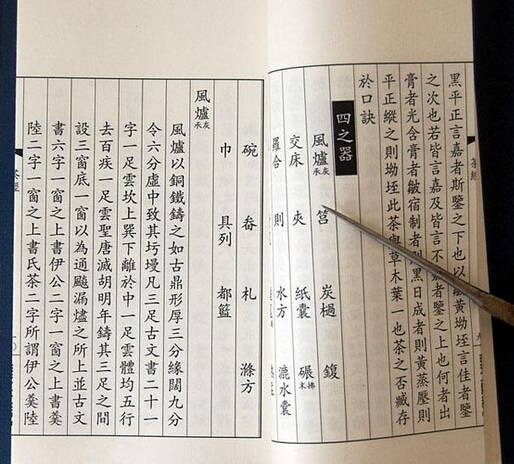 黑平正言嘉者斯鑒之下也以皺黃坳垤言佳者鑒
之次也若皆言嘉及皆言不嘉者鑒之上也何者出
膏者光含膏者皺宿制者則黑日成者則黃蒸壓則
平正縱之則坳垤此茶與草木葉一也茶之否臧存
於口訣
四之器
風爐灰承 筥 炭檛 鍑
交床 夾 紙囊 碾拂末
羅合 則 水方 漉水囊
碗 畚 札 滌方
巾 具列 都籃
風爐灰承
風爐以銅鐵鑄之如古鼎形厚三分緣闊九分
令六分虛中致其圬墁凡三足古文書二十一
字一足云坎上巽下離於中一足云體均五行
去百疾一足云聖唐滅胡明年鑄其三足之間
設三窗底一窗以為通飈漏燼之所上並古文
書六字一窗之上書伊公二字一窗之上書羹
陸二字一窗之上書氏茶二字所謂伊公羹陸
茶經